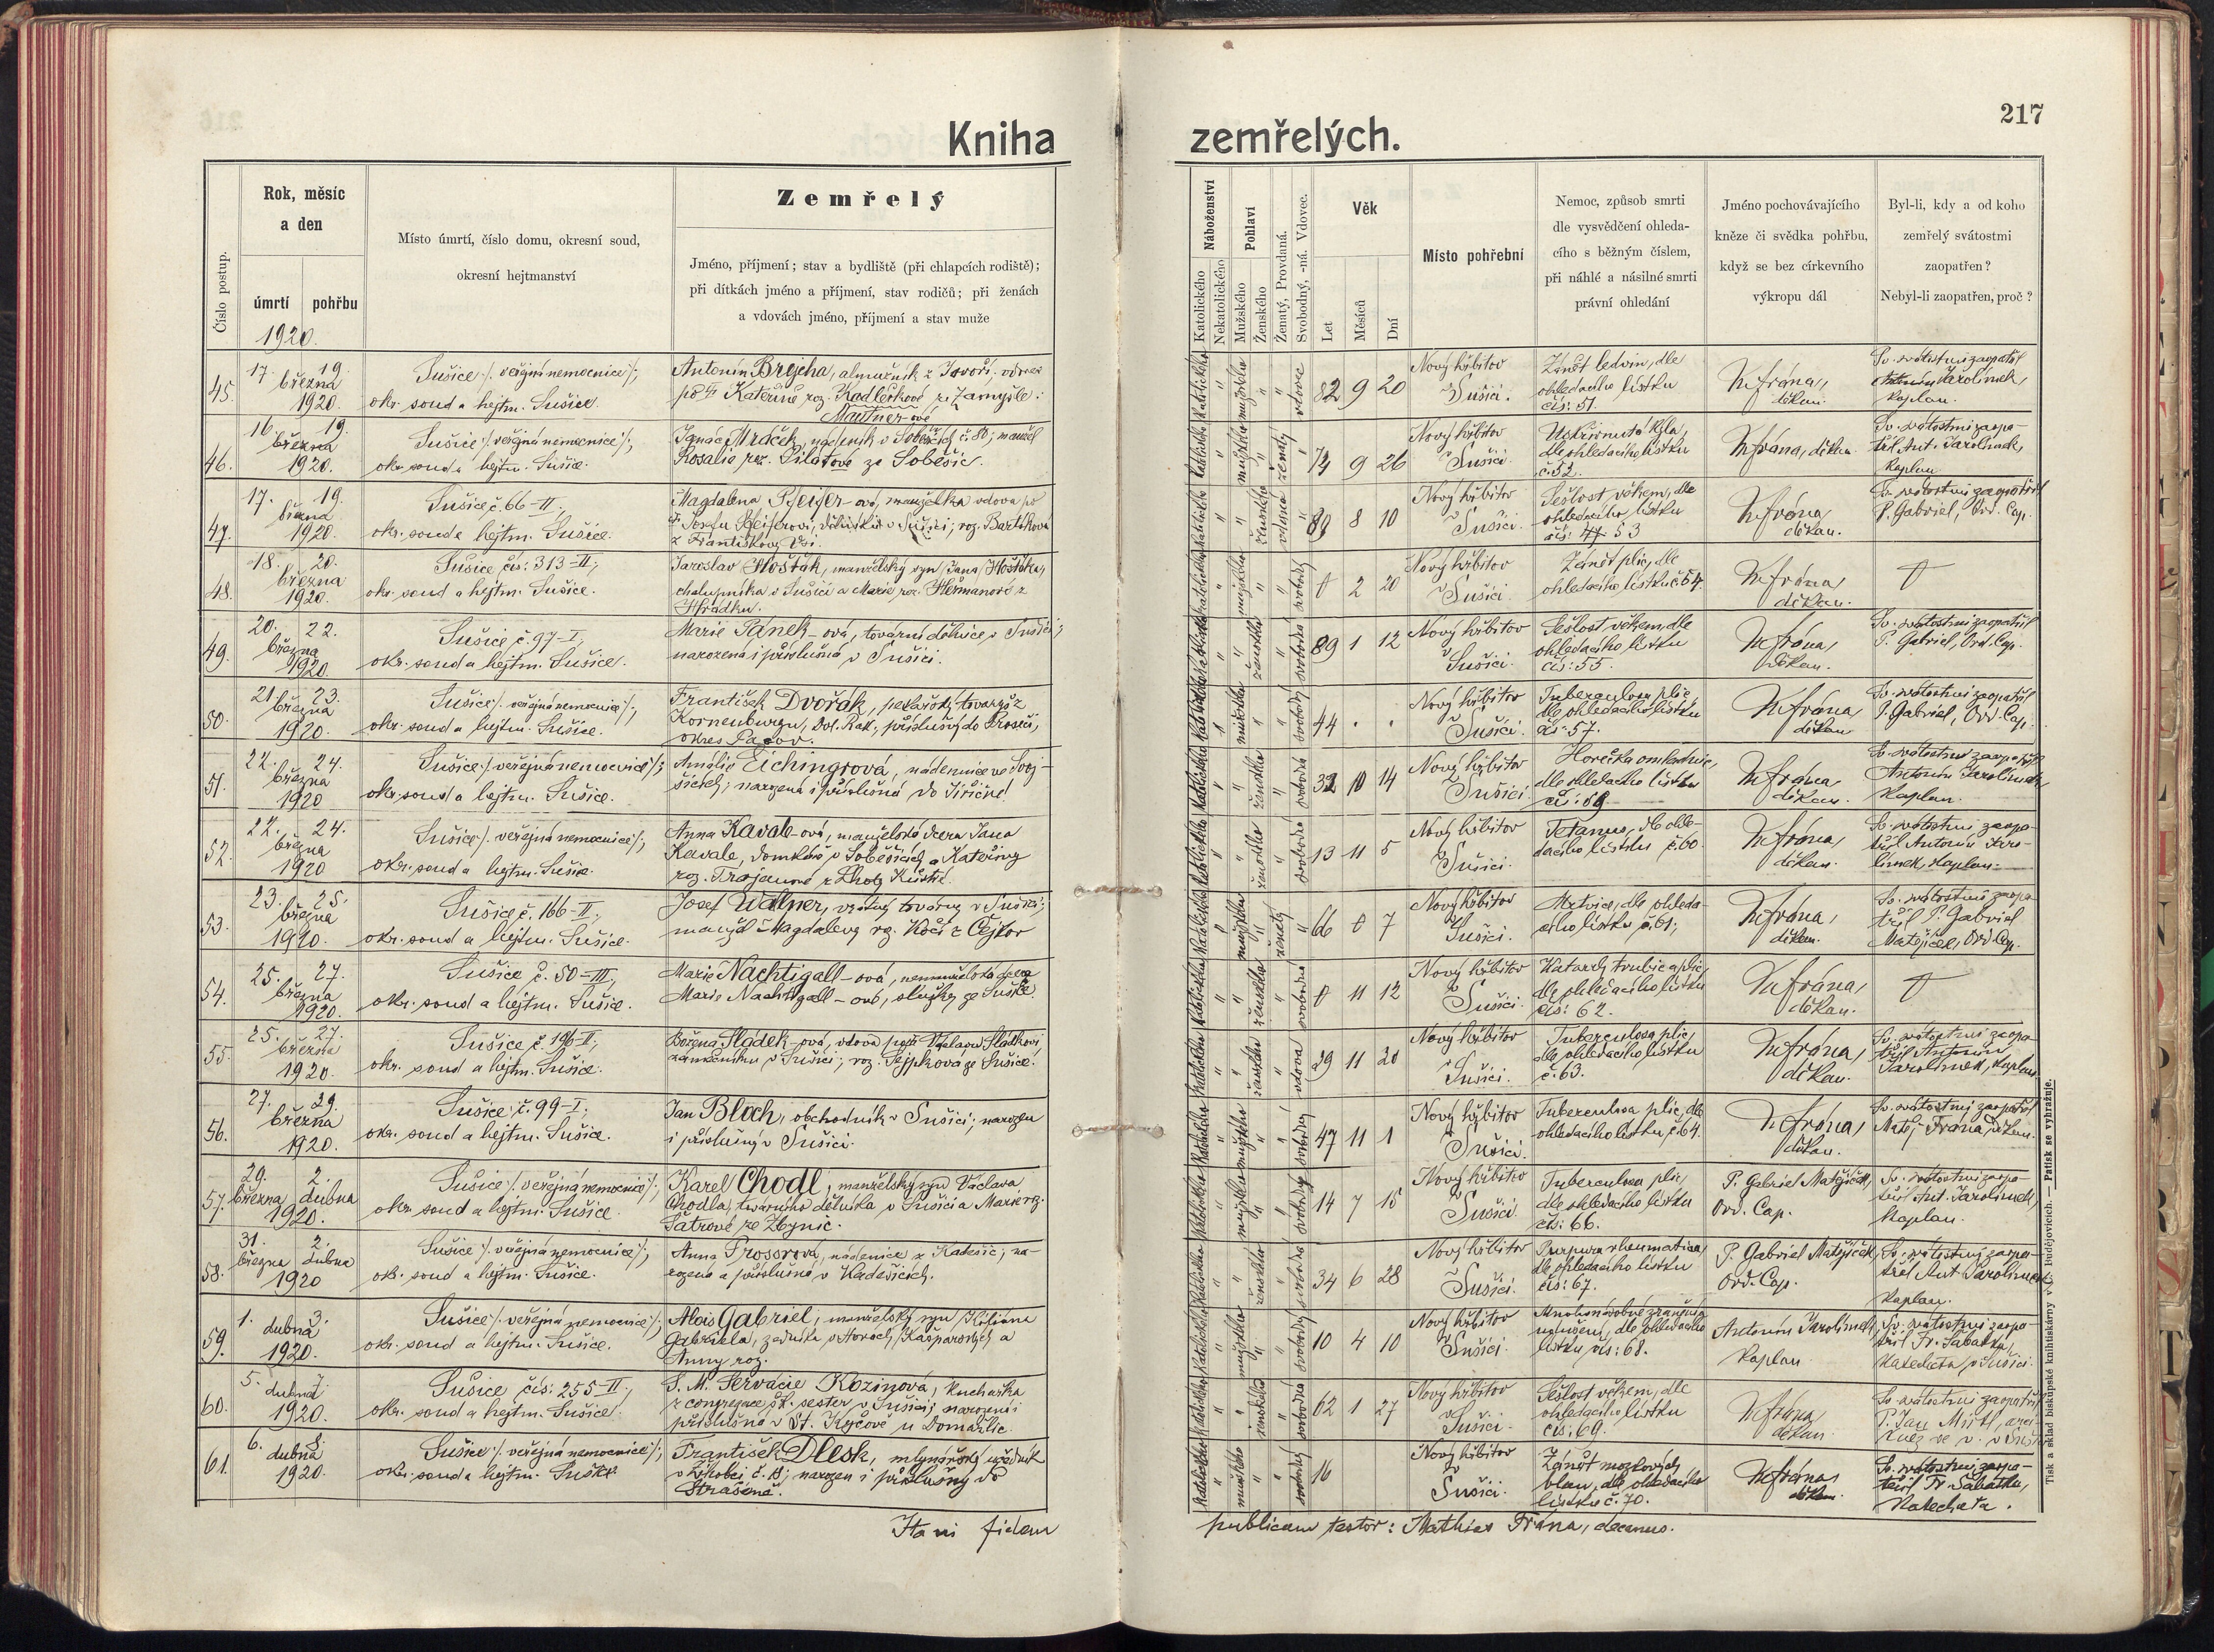 217
Kniha zemřelých.
Číslo postup.
Rok, měsíc
a den
úmrtí
pohřbu
Místo úmrtí, číslo domu, okresní soud,
okresní hejtmanství
Zemřelý
Jméno, příjmení; stav a bydliště (při chlapcích rodiště);
při dítkách jméno a příjmení, stav rodičů; při ženách
a vdovách jméno, příjmení a stav muže
Náboženství
Katolického
Nekatolického
Pohlaví
Mužského
Ženského
Ženatý, Provdaná.
Svobodný, -ná. Vdovec.
Věk
Let
Měsíců
Dní
Místo pohřební
Nemoc, způsob smrti
dle vysvědčení ohleda-
cího s běžným číslem,
při náhlé a násilné smrti
právní ohledání
Jméno pochovávajícího
kněze či svědka pohřbu,
když se bez církevního
výkropu dál
Byl-li, kdy a od koho
zemřelý svátostmi
zaopatřen?
Nebyl-li zaopatřen, proč?
1920.
45. 17. 19. března 1920.
Sušice /: veřejná nemocnice :/;
okr. soud a hejtm. Sušice.
Antonín Brejcha, almužník z Javoří, vdovec
po † Kateřině roz. Kadlečkové ze Zamyšle.
katolického mužského vdovec 82 9 20
Nový hřbitov v Sušici.
Zánět ledvin, dle
ohledacího lístku
čís: 51.
M. Frána, děkan.
Sv. svátostmi zaopatřil
Antonín Jarolímek,
kaplan.
46. 16. 19. března 1920.
Sušice /: veřejná nemocnice :/;
okr. soud a hejtm. Sušice.
Mautner-ové
Ignác Mráček, nádeník v Soběšicích č. 80; manžel
Rosalie roz. Pilátové ze Soběšic.
katolického mužského ženatý 74 9 26
Nový hřbitov v Sušici.
Uskřinutá kýla,
dle ohledacího lístku
č. 52.
M. Frána, děkan
Sv. svátostmi zaopa-
třil Ant. Jarolímek,
kaplan
47. 17. 19. března 1920.
Sušice č. 66-II;
okr. soud a hejtm. Sušice.
Magdalena Pfeifer-ová, manželka vdova po
† Josefu Pfeiferovi, dělníku v Sušici, roz. Bartíková
z Františkovy Vsi.
katolického ženského vdova 80 8 10
Nový hřbitov v Sušici.
Sešlost věkem, dle
ohledacího lístku
čís: 53
M. Frána děkan.
Sv. svátostmi zaopatřil
P. Gabriel, Ord. Cap.
48. 18. 20. března 1920.
Sušice čís: 313-II;
okr. soud a hejtm. Sušice.
Jaroslav Hošťák, manželský syn Jana Hošťáka,
chalupníka v Sušici a Marie roz. Heřmanové z
Hrádku.
mužského svobodný 0 2 20
Nový hřbitov v Sušici.
Zánět plic, dle
ohledacího lístku č. 54.
M. Frána děkan.
49. 20. 22. března 1920.
Sušice č. 97-I;
okr. soud a hejtm. Sušice.
Marie Pánek-ová, tovární dělnice v Sušici;
narozená i příslušná v Sušici.
ženského svobodná 89 1 12
Nový hřbitov v Sušici.
Sešlost věkem, dle
ohledacího lístku
čís: 55.
M. Frána, děkan.
Sv. svátostmi zaopatřil
P. Gabriel, Ord. Cap.
50. 21. 23. března 1920.
Sušice /: veřejná nemocnice :/;
okr. soud a hejtm. Sušice.
František Dvořák, pekařský tovaryš z
Korneuburgu, Dol. Rak., příslušný do Proseči,
okres Pacov.
mužského svobodný 44 . .
Nový hřbitov v Sušici.
Tuberculosa plic,
dle ohledacího lístku
čís. 57.
M. Frána děkan
Sv. svátostmi zaopatřil
P. Gabriel, Ord. Cap.
51. 22. 24. března 1920
Sušice /: veřejná nemocnice :/;
okr. soud a hejtm. Sušice.
Amálie Eichingrová, nádennice ve Svoj-
šicích; narozená i příslušná do Jiřičné.
ženského svobodná 32 10 14
Nový hřbitov v Sušici
Horečka omladnic,
dle ohledacího lístku
čís: 59
M. Frána děkan.
Sv. svátostmi zaopatřil
Antonín Jarolímek
kaplan.
52. 22. 24. března 1920
Sušice /: veřejná nemocnice :/;
okr. soud a hejtm. Sušice.
Anna Kavale-ová, manželská dcera Jana
Kavale, domkáře v Soběšicích a Kateřiny
roz. Trojanové z Lhoty
ženského svobodná 13 11 5
Nový hřbitov v Sušici.
Tetanus, dle ohle-
dacího lístku č. 60.
M. Frána, děkan.
Sv. svátostmi zaopa-
třil Antonín Jaro-
límek, kaplan.
53. 23. 25. března 1920.
Sušice č. 166-II;
okr. soud a hejtm. Sušice.
Josef Walner, vrátný továrny v Sušici;
manžel Magdaleny roz. Kočí z Čejkov
mužského ženatý 66 0 7
Nový hřbitov v Sušici.
Mrtvice, dle ohleda-
cího lístku č. 61;
M. Frána, děkan.
Sv. svátostmi zaopa-
třil P. Gabriel
Matějíček, Ord. Cap.
54. 25. 27. března 1920.
Sušice č. 50-III;
okr. soud a hejtm. Sušice.
Marie Nachtigall-ová, nemanželská dcera
Marie Nachtigall-ové, služky ze Sušice.
ženského svobodná 0 11 12
Nový hřbitov v Sušici.
Katarrh trubic a plic,
dle ohledacího lístku
čís: 62.
M. Frána, děkan.
55. 25. 27. března 1920.
Sušice č. 196-II;
okr. soud a hejtm. Sušice.
Božena Sládek-ová, vdova po † Václavu Sládkovi
v Sušici; roz. Sejpková ze Sušice.
ženského vdova 29 11 20
Nový hřbitov v Sušici.
Tuberculosa plic,
dle ohledacího lístku
č. 63.
M. Frána, děkan.
Sv. svátostmi zaopa-
třil Antonín
Jarolímek, kaplan
56. 27. 29. března 1920.
Sušice č. 99-I;
okr. soud a hejtm. Sušice.
Jan Bloch, obchodník v Sušici; narozen
i příslušný v Sušici.
mužského svobodný 47 11 1
Nový hřbitov v Sušici.
Tuberculosa plic, dle
ohledacího lístku, č. 64.
M. Frána, děkan.
Sv. svátostmi zaopatřil
Matěj Frána, děkan.
57. 29. března 2. dubna 1920.
Sušice /: veřejná nemocnice :/;
okr. soud a hejtm. Sušice.
Karel Chodl, manželský syn Václava
Chodla, továrního dělníka v Sušici a Marie roz.
Šatrové ze Zbynic.
mužského svobodný 14 7 15
Nový hřbitov v Sušici
Tuberculosa plic,
dle ohledacího lístku
čís. 66.
P. Gabriel Matějíček,
Ord. Cap.
Sv. svátostmi zaopa-
třil Ant. Jarolímek,
kaplan.
58. 31. března 2. dubna 1920
Sušice /: veřejná nemocnice :/;
okr. soud a hejtm. Sušice.
Anna Prosserová, nádenice z Kadešic; na-
rozená a příslušná v Kadešicích.
ženského svobodná 34 6 28
Nový hřbitov v Sušici.
Purpura rheumatica,
dle ohledacího lístku
čís: 67.
P. Gabriel Matějíček,
Ord. Cap.
Sv. svátostmi zaopa-
třil Ant. Jarolímek
kaplan.
59. 1. 3. dubna 1920.
Sušice /: veřejná nemocnice :/;
okr. soud a hejtm. Sušice.
Alois Gabriel, manželský syn Kiliána
Gabriela, zedníka v Horách Kašperských a
Anny roz.
mužského svobodný 10 4 10
Nový hřbitov v Sušici.
Mnohonásobné zranění a
dle ohledacího
lístku čís: 68.
Antonín Jarolímek,
kaplan
Sv. svátostmi zaopa-
třil Fr. Sabatka,
katecheta v Sušici.
60. 5. dubna 1920.
Sušice, čís: 255-II;
okr. soud a hejtm. Sušice.
S. M. Servácie Kozinová, kuchařka
z congregace šk. sester v Sušici; narozená i
příslušná v St. Kyčově u Domažlic.
ženského svobodná 62 1 27
Nový hřbitov v Sušici.
Sešlost věkem, dle
ohledacího lístku
čís: 69.
M. Frána děkan
Sv. svátostmi zaopatřil
61. 6. dubna 1920.
Sušice /: veřejná nemocnice :/;
okr. soud a hejtm. Sušice
František Dlesk, mlynářský
narozen i příslušný do
Strašína.
mužského svobodný 16
Nový hřbitov v Sušici.
Zánět mozkových
blan, dle ohledacího
lístku č. 70.
M. Frána děkan
Sv. svátostmi zaopa-
třil Fr. Sabatka,
katecheta.
Ita ni fidem publicam testor: Mathias Frána, decanus.
Tisk a sklad biskupské knihtiskárny v Č. Budějovicích. — Patisk se vyhražuje.